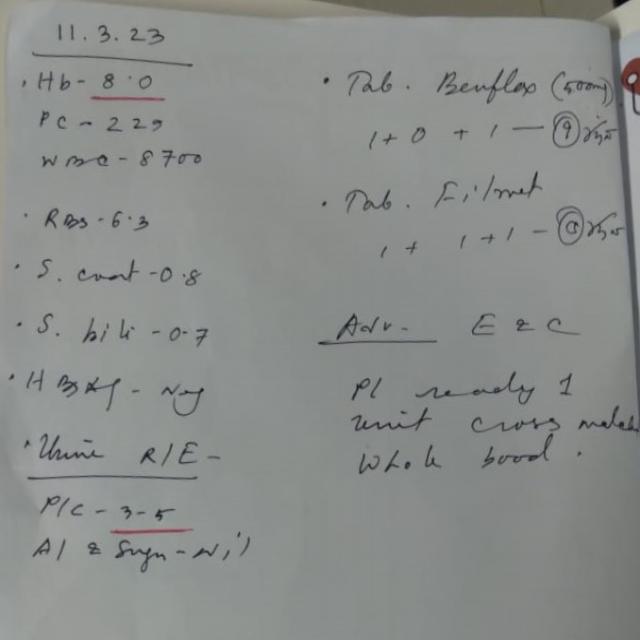 11.3.23
Hb- 8.0
PC - 229
WBC - 8700
RBS - 6.3
S. creat - 0.8
S. bili - 0.7
HBsAg - Neg
Urine R/E -
P/C - 3-5
Al & Sugar - Nil
Tab. Benflox (500mg)
1 + 0 + 1 —
Tab. Filmet
1 + 1 + 1 —
Adv- E & C
Pl ready 1
unit cross match
whole bood.